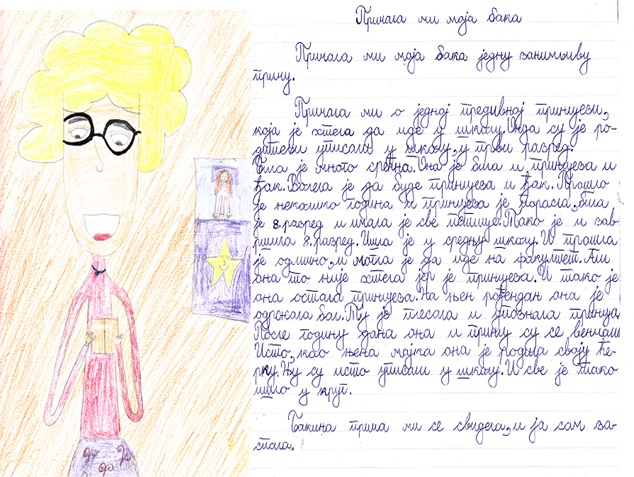 Причала ми моја бака
Причала ми моја бака једну занимљиву
причу.
Причала ми о једној предивној принцези,
која је хтела да иде у школу. Онда су је ро-
дитељи уписали у школу, у први разред.
Била је много срећна. Она је била и принцеза и
ђак. Волела је да буде принцеза и ђак. Прошло
је неколико година и принцеза је порасла, била
је 8. разред и имала је све петице. Тако је и зав-
ршила 8. разред. Ишла је у средњу школу. И прошла
је одлично, и могла је да иде на факултет. Али
она то није хтела јер је принцеза. И тако је
она остала принцеза. На њен рођендан она је
одржала бал. Ту је плесала и упознала принца.
После годину дана она и принц су се венчали
Исто, као њена мајка она је родила своју ће-
рку. Њу су исто уписали у школу. И све је тако
ишло у круг.
Бакина прича ми се свидела, и ја сам за-
спала.